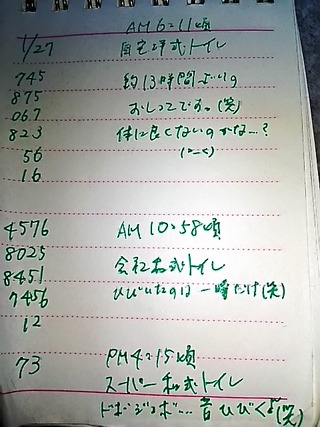 AM 6:11頃
1/27 自宅洋式トイレ
745 約13時間ぶりの
875 おしっこです。(笑)
067 体に良くないのかな…?
823
56
16
4576 AM 10:58頃
8025 会社和式トイレ
8451 ひびいたのは一瞬だけ(笑)
7456
12
73 PM 4:15頃
スーパー和式トイレ
ドボジョボ… 音ひびく♪(笑)